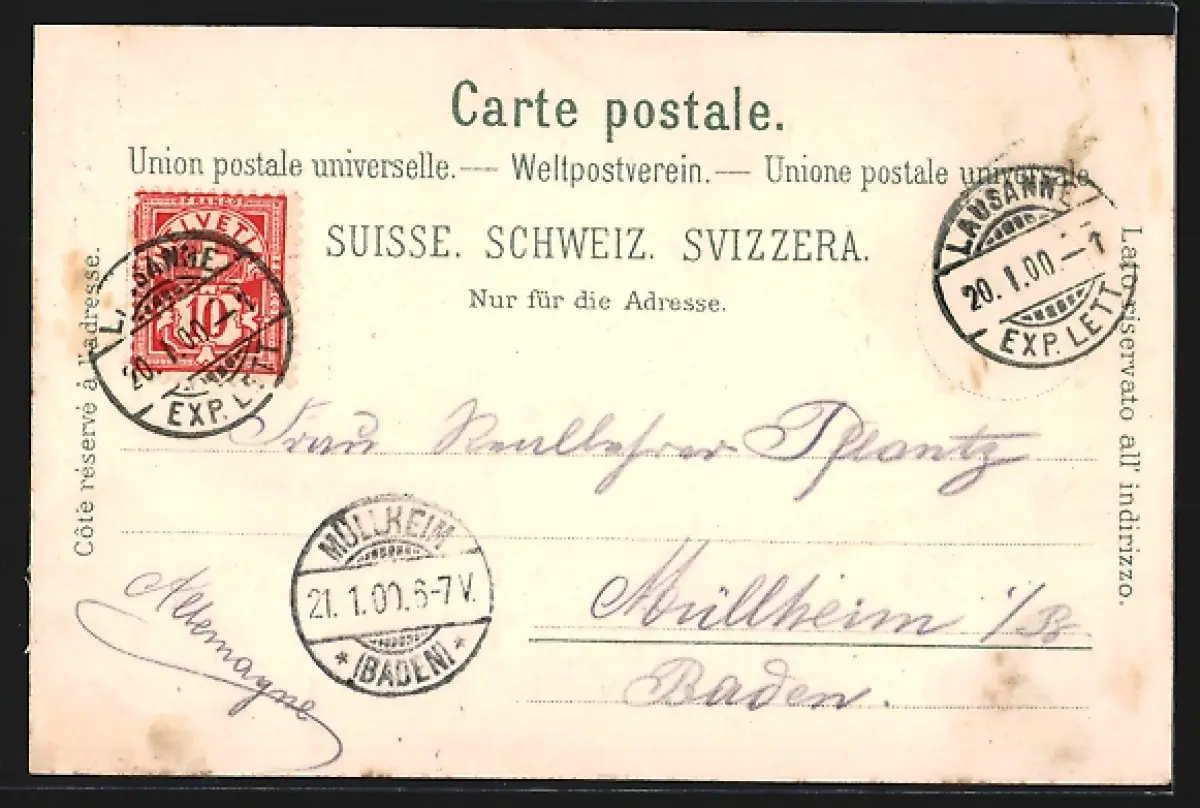 Carte postale.
Union postale universelle. — Weltpostverein. — Unione postale universale
SUISSE. SCHWEIZ. SVIZZERA.
Nur für die Adresse.
Côte réservé à l'adresse.
Lato riservato all' indirizzo.
FRANCO
HELVETIA
10
LAUSANNE
20. 1.00.—
EXP. LETT
LAUSANNE
20. 1.00.—1
EXP. LETT.
Frau Reallehrer Pflantz
MÜLLHEIM
21. 1.00. 6-7 V.
* (BADEN) *
Müllheim i/B
Baden.
Allemagne